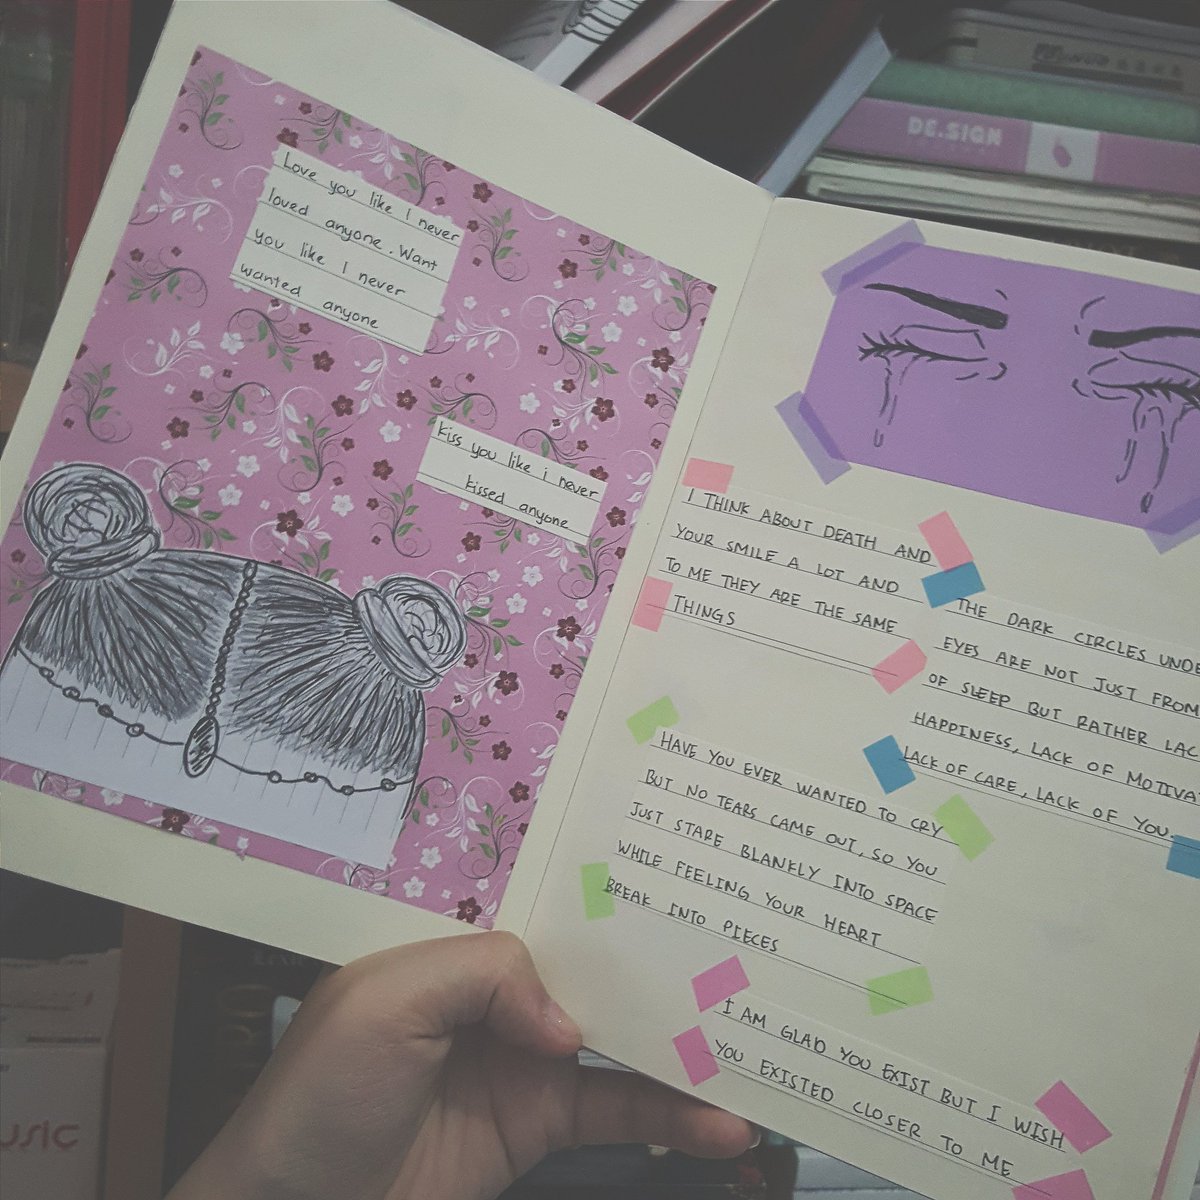 Love you like I never
loved anyone. Want
you like I never
wanted anyone
kiss you like i never
kissed anyone
I THINK ABOUT DEATH AND
YOUR SMILE A LOT AND
TO ME THEY ARE THE SAME
THINGS
THE DARK CIRCLES UNDE
EYES ARE NOT JUST FROM
OF SLEEP BUT RATHER LAC
HAPPINESS, LACK OF MOTIVAT
LACK OF CARE, LACK OF YOU.
HAVE YOU EVER WANTED TO CRY
BUT NO TEARS CAME OUT, SO YOU
JUST STARE BLANKLY INTO SPACE
WHILE FEELING YOUR HEART
BREAK INTO PIECES
I AM GLAD YOU EXIST BUT I WISH
YOU EXISTED CLOSER TO ME
DE.SIGN
usic